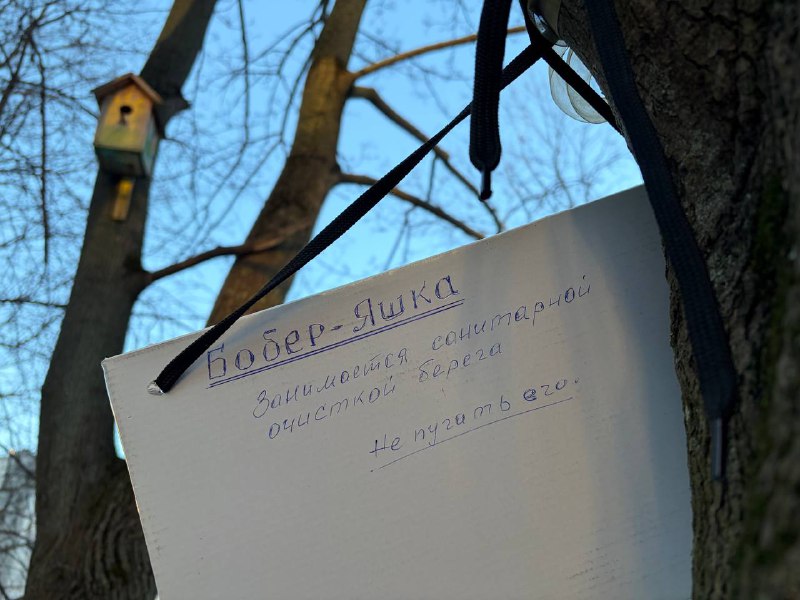 Бобер-Яшка
Занимается санитарной
очисткой берега
Не пугать его.